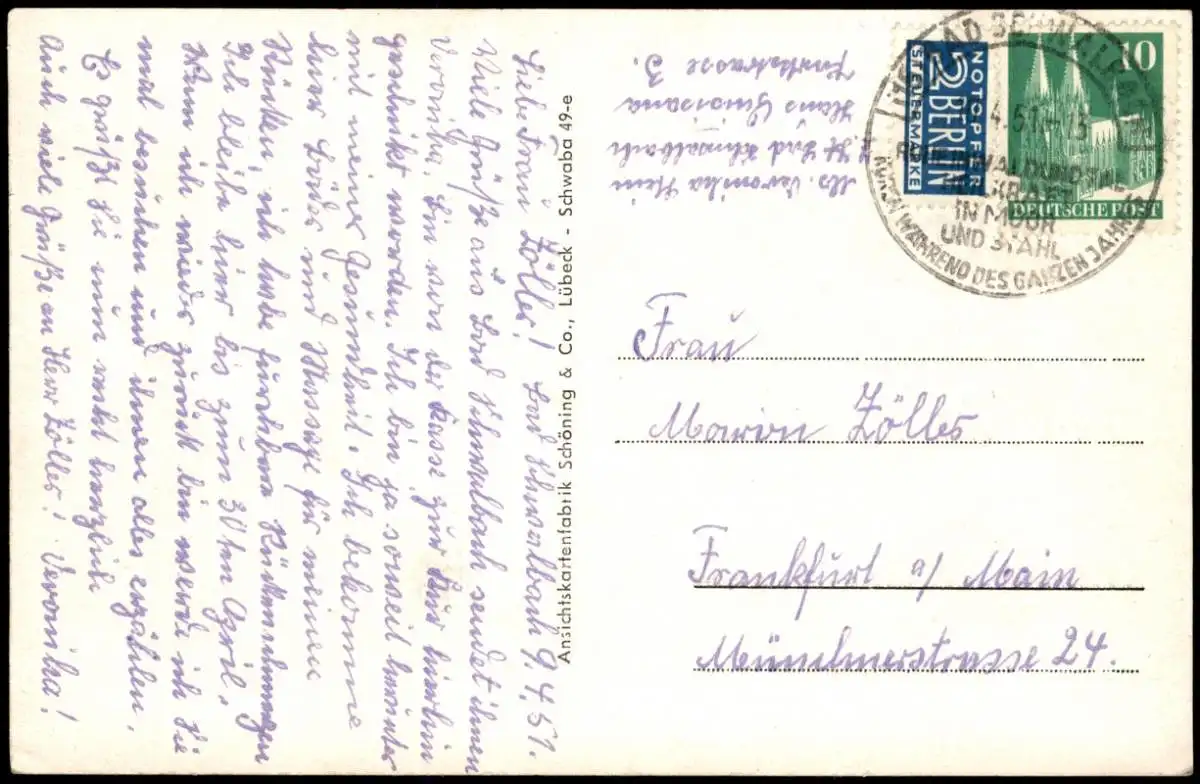 Liebe Frau Zöller! Bad Schwalbach 9.4.51.
Viele Grüße aus Bad Schwalbach sendet ihnen
Veronika. Bin von der Kasse zur Kur hierhin
geschickt worden. Ich bin ja soweit herunter
mit meiner Gesundheit. Ich bekomme
hier Bäder und Massage für meinen
Rücken, ich habe furchtbare Rückenschmerzen
Ich bleibe hier bis zum 30ten April.
Wenn ich wieder zurück bin werde ich Sie
mal besuchen und ihnen alles erzählen.
Es grüßt Sie nun recht herzlich
Auch viele Grüße an Herr Zöller! Veronika!
Ansichtskartenfabrik Schöning & Co., Lübeck - Schwaba 49-e
Abs. Veronika Hein
Bad Schwalbach
Haus
3.
NOTOPFER
2 BERLIN
STEUERMARKE
10
DEUTSCHE POST
BAD SCHWALBACH
4.51-13
IN MOOR
UND STAHL
AUCH WÄHREND DES GANZEN JAHRES
Frau
Maria Zöller
Frankfurt a/ Main
Münchnerstrasse 24.